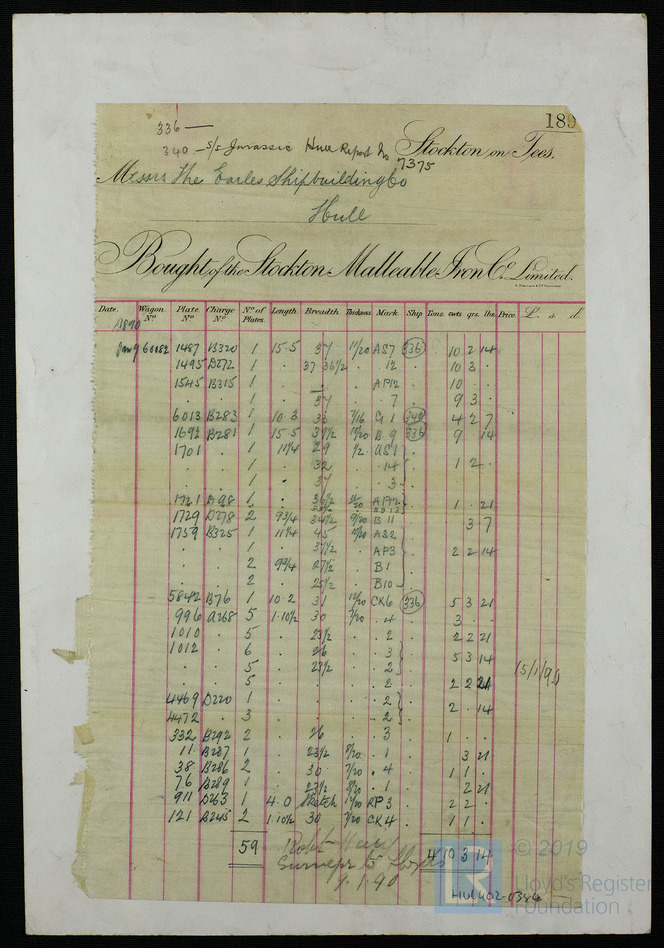 189
336 —
340 — S/S Jurassic Hull Report No 7375
Stockton on Tees,
Messrs The Earles Shipbuilding Co
Hull
Bought of the Stockton Malleable Iron Co. Limited.
Date. Wagon No. Plate No. Charge No. No. of Plates. Length. Breadth. Thickness Mark. Ship Tons. cwts. qrs. lbs. Price. £. s. d.
1890
Jany 9 60082 1487 B320 1 15·5 37 11/20 AS7 336 10 2 14
1495 D272 1 · · 37 36 1/2 · 12 10 3 ·
1545 B315 1 · · — · AP12 10 · ·
· · 1 · · 37 · 7 9 3 ·
6013 B283 1 10·3 33 7/16 G1 340 4 2 7
1692 B281 1 15·5 37 1/2 11/20 B9 336 9 · 14
1701 · 1 11 1/4 29 1/2 AS1
· · 1 · 32 · 14 1 2 ·
· · 1 · 37 · 3
1721 D98 1 · 36 1/2 AP12 1 · 21
1729 D278 2 9 3/4 34 1/2 9/20 B11 3 7
1759 B325 1 11 1/4 45 AS2
· · 1 · 37 1/2 · AP3 2 2 14
· · 2 9 3/4 27 1/2 · B1
· · 2 · 25 1/2 · B10
5842 B76 1 10·2 31 CK6 336 5 3 21
996 A268 5 1·10 1/2 30 7/20 · 4 3 · ·
1010 · 5 · 23 1/2 · 2 2 2 21
1012 · 6 · 26 · 3
· 5 · 23 1/2 · 2 5 3 14
· 5 · · · 2 2 2 21
15/1/90
4469 D220 1 · · · 2
4472 · 3 · · · 2 2 · 14
332 B292 2 · 26 · 3 1 · ·
11 B287 1 · 23 1/2 8/20 · 1 3 21
38 B286 2 · 30 7/20 · 4 1 1 ·
76 B289 1 · 23 1/2 8/20 · 1 2 21
911 D263 1 4·0 Sketch RP3 2 2 ·
121 B245 2 1·10 1/2 30 7/20 CK4 1 1 ·
59 4 10 3 14
Surveyor to Lloyds
9.1.90
HUL402-0384
© 2019
Lloyd's Register
Foundation
LR